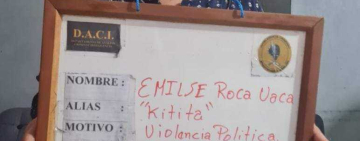 D.A.C.I.
NOMBRE : EMILSE Roca Vaca
ALIAS : "Kitita"
MOTIVO : Violencia Politica